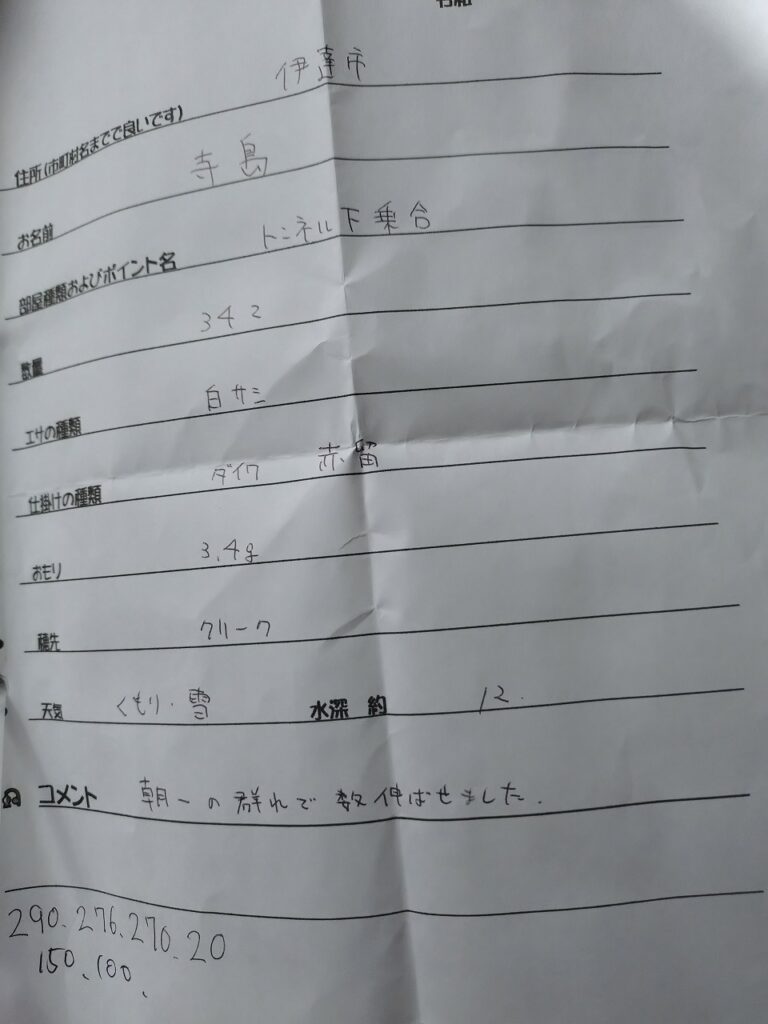 住所(市町村名までで良いです) 伊達市
お名前 寺島
部屋種類およびポイント名 トンネル下乗合
数量 342
エサの種類 白サミ
仕掛けの種類 ダイワ 赤留
おもり 3.4g
穂先 クリーク
天気 くもり・雪 水深 約 12.
コメント 朝一の群れで数伸ばせました.
290.276.270.20
150.100.